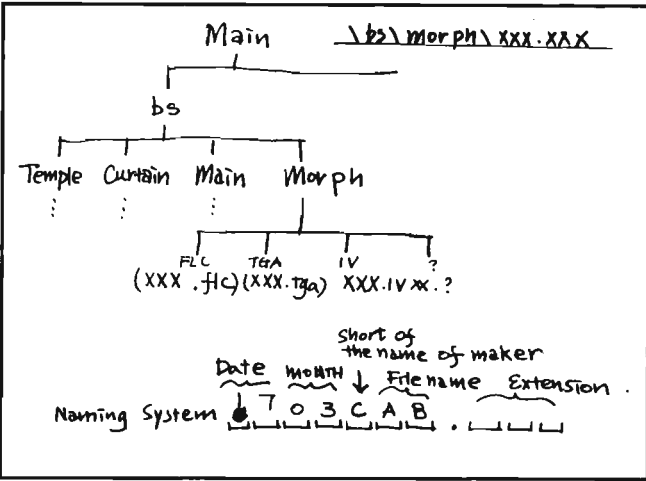 Main \bs\morph\xxx.xxx
bs
Temple Curtain Main Morph
FLC TGA IV ?
(XXX.flc) (XXX.tga) XXX.IV xx.?
short of
the name of maker
Date MONTH File name Extension.
Naming System 7 0 3 C A B .